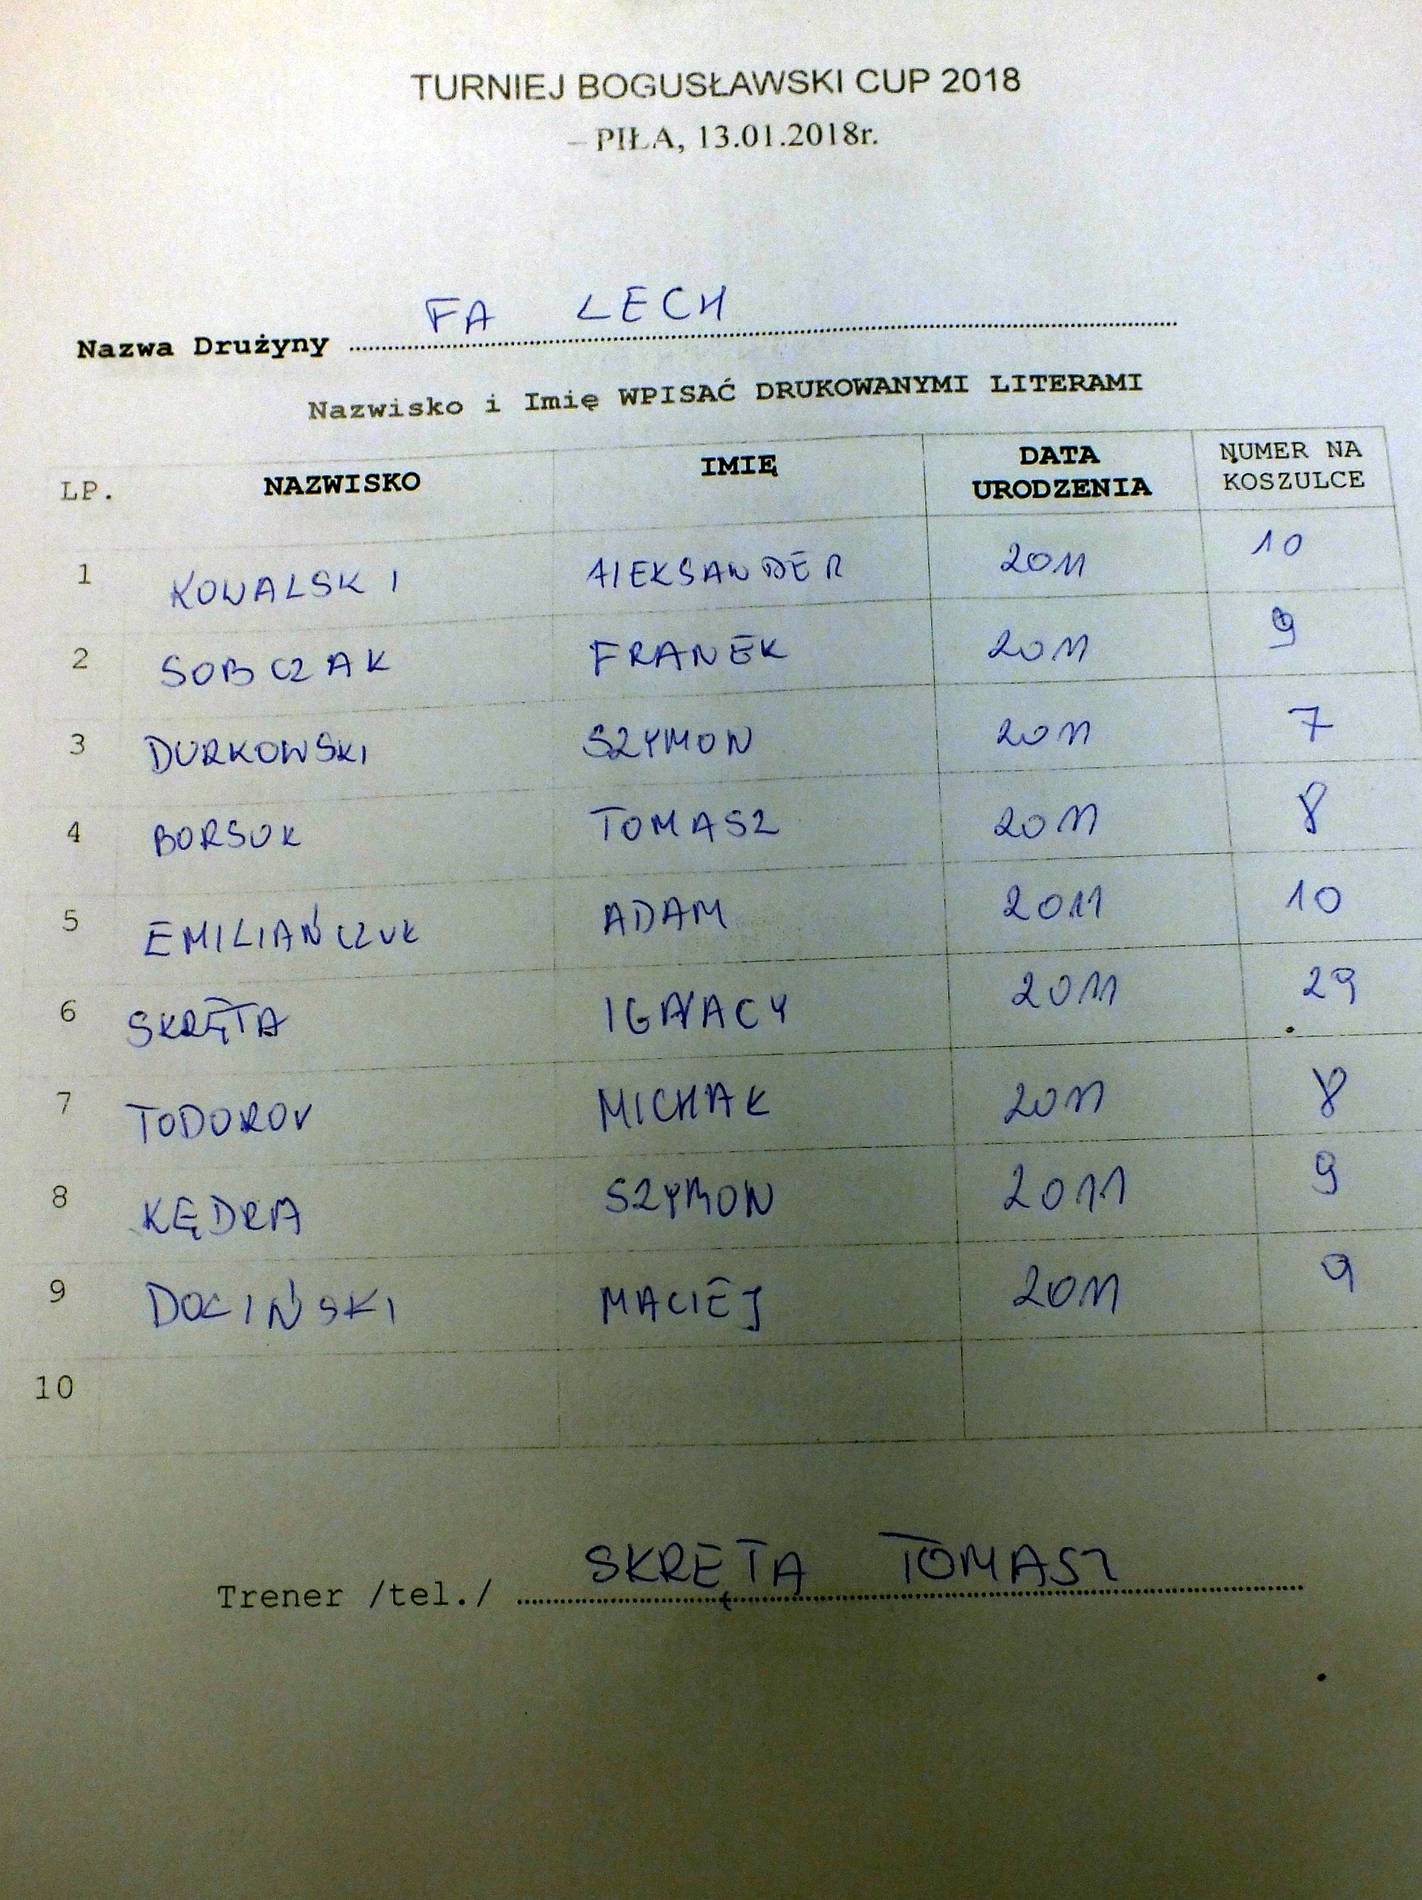 TURNIEJ BOGUSŁAWSKI CUP 2018
– PIŁA, 13.01.2018r.
Nazwa Drużyny FA LECH
Nazwisko i Imię WPISAĆ DRUKOWANYMI LITERAMI
LP. NAZWISKO IMIĘ DATA URODZENIA NUMER NA KOSZULCE
1 KOWALSKI ALEKSANDER 2011 10
2 SOBCZAK FRANEK 2011 9
3 DURKOWSKI SZYMON 2011 7
4 BORSUK TOMASZ 2011 8
5 EMILIAŃCZUK ADAM 2011 10
6 SKRĘTA IGNACY 2011 29
7 TODOROV MICHAK 2011 8
8 KĘDRA SZYMON 2011 9
9 DOLIŃSKI MACIEJ 2011 9
10
Trener /tel./ SKRĘTA TOMASZ